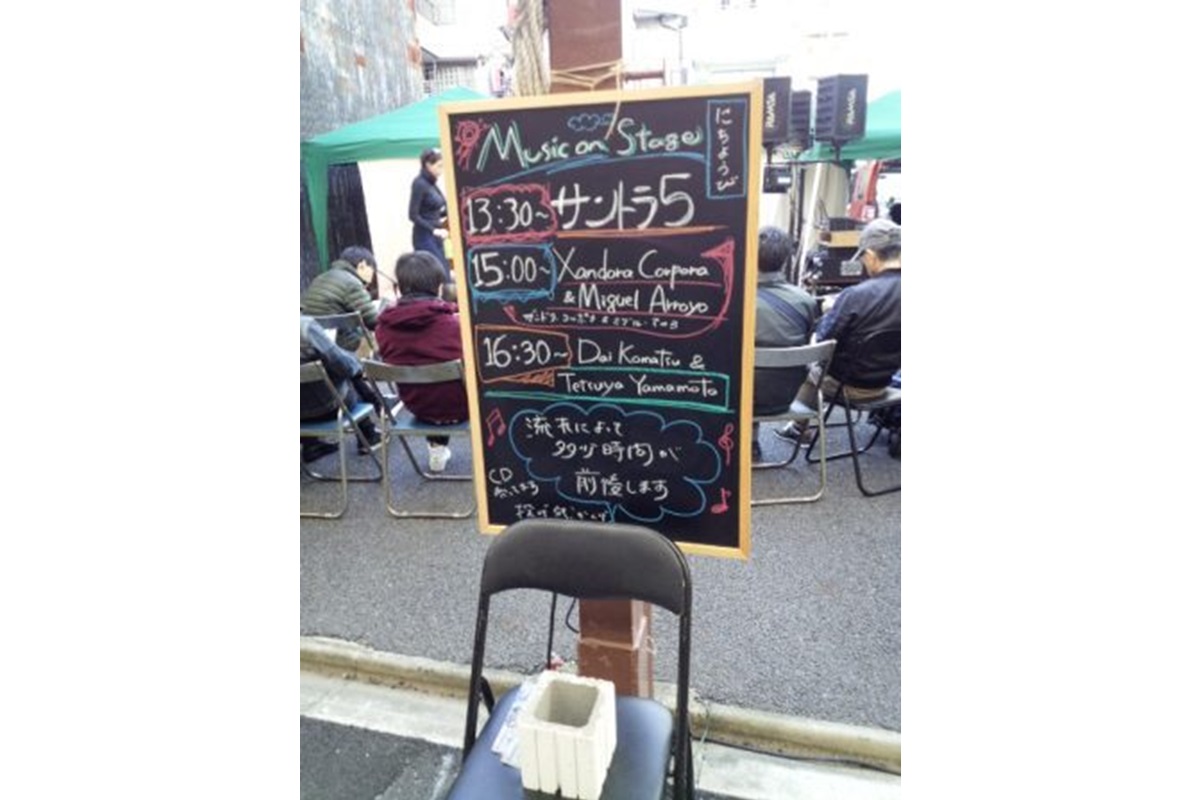 Music on Stage
にちようび
13:30~ サントラ5
15:00~ Xandora Corpora
& Miguel Arroyo
16:30~ Dai Komatsu &
Tetsuya Yamamoto
流れによって
時間が
前後します
CD